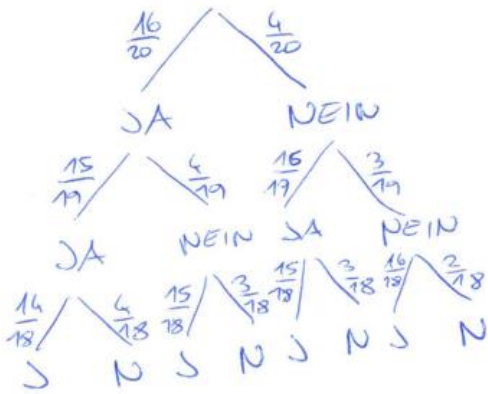 16/20 4/20
JA NEIN
15/19 4/19 16/17 3/19
JA NEIN JA NEIN
14/18 4/18 15/18 3/18 15/18 3/18 16/18 2/18
J N J N J N J N